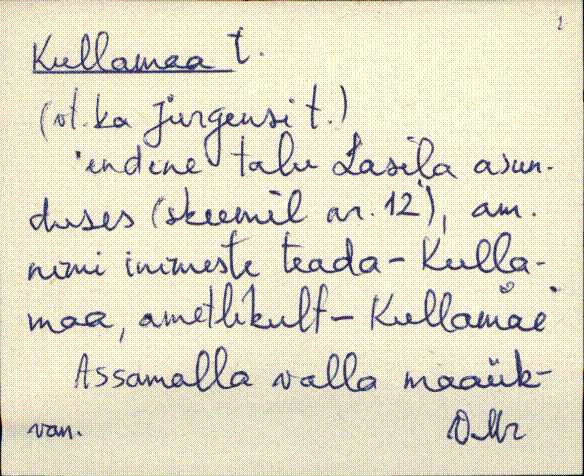 1
Kullamaa t.
(vt. ka Jürgensi t.)
endine talu Lasila asun-
duses (skeemil nr. 12), am.
nimi inimeste teada - Kulla-
maa, ametlikult - Kullamäe
Assamalla valla maaük-
van.